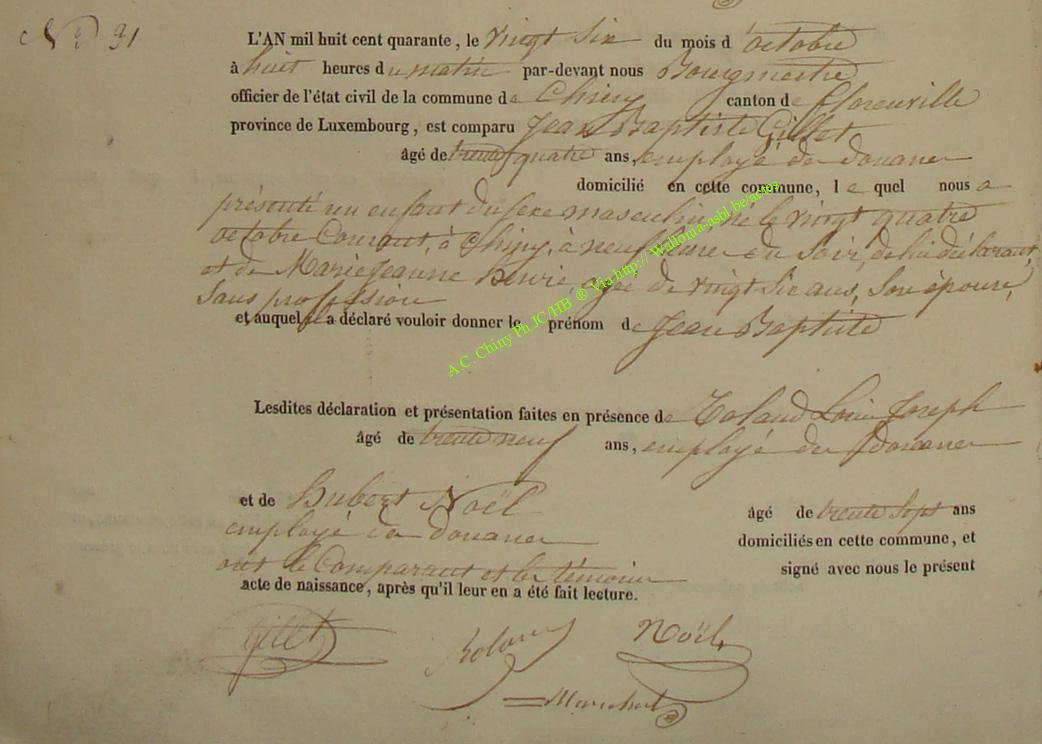 No 31
L'AN mil huit cent quarante, le vingt Six du mois d'octobre
à huit heures du matin par-devant nous Bourgmestre
officier de l'état civil de la commune de Chiny canton de florenville
province de Luxembourg, est comparu Jean Baptiste Gillet
âgé de trente quatre ans, employé des douanes
domicilié en cette commune, le quel nous a
présenté un enfant du sexe masculin, né le vingt quatre
octobre Courant, à Chiny, à neuf heures du Soir, de lui déclarant,
et de Marie Jeanne henrie, agée de vingt Six ans, Son épouse,
Sans profession
et auquel il a déclaré vouloir donner le prénom de Jean Baptiste
Lesdites déclaration et présentation faites en présence de Roland Louis Joseph
âgé de trente neuf ans, employé des douanes
et de hubert Noël âgé de trente Sept ans
employé des douanes domiciliés en cette commune, et
ont le Comparant et les témoins signé avec nous le présent
acte de naissance, après qu'il leur en a été fait lecture.
Gillet Roland Noël
Marechal
A.C. Chiny Ph JC/HB ® Via http://Wallonia-asbl.be/actes